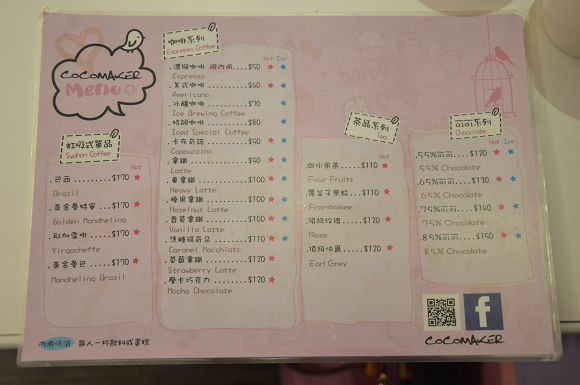 COCOMAKER
Menu
虹吸式單品
Syphon Coffee
Hot
.巴西......$170
Brazil
.黃金曼特寧...$170
Golden Mandheling
.耶加雪啡....$170
Yirgacheffe
.黃金曼巴....$170
Mandheling Brazil
咖啡系列
Espresso Coffee
Hot Ice
.濃縮咖啡 限內用....$50
Espresso
.美式咖啡........$60
Americano
.冰釀咖啡........$70
Ice Brewing Coffee
.特調咖啡........$80
Iced Special Coffee
.卡布奇諾........$90
Cappuccino
.拿鐵..........$90
Latte
.重拿鐵.........$100
Heavy Latte
.榛果拿鐵........$100
Hazelnut Latte
.香草拿鐵........$100
Vanilla Latte
.焦糖瑪奇朵.......$110
Caramel Macchiato
.草莓拿鐵........$120
Strawberry Latte
.摩卡巧克力.......$120
Mocha Chocolate
茶品系列
Tea
Hot
.四水果茶....$110
Four Fruits
.覆盆子果粒...$110
Framboisee
.頂級玫瑰....$120
Rose
.頂級伯爵....$120
Earl Grey
可可系列
Chocolate
Hot Ice
.55%可可....$120
55% Chocolate
.65%可可....$130
65% Chocolate
.75%可可....$140
75% Chocolate
.85%可可....$150
85% Chocolate
f
COCOMAKER
內用低消 每人一杯飲料或蛋糕